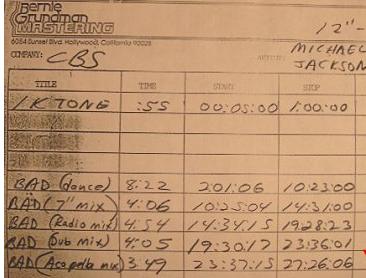 Bernie
Grundman
MASTERING
6054 Sunset Blvd. Hollywood, California 90028
12"-
COMPANY: CBS
ARTIST: MICHAEL
JACKSON
TITLE TIME START STOP
1K TONE :55 00:05:00 1:00:00
BAD (dance) 8:22 2:01:06 10:23:00
BAD (7" mix) 4:06 10:25:04 14:31:00
BAD (Radio mix) 4:54 14:34:15 19:28:23
BAD (Dub mix) 4:05 19:30:17 23:36:01
BAD (Acapella mix) 3:49 23:37:15 27:26:06